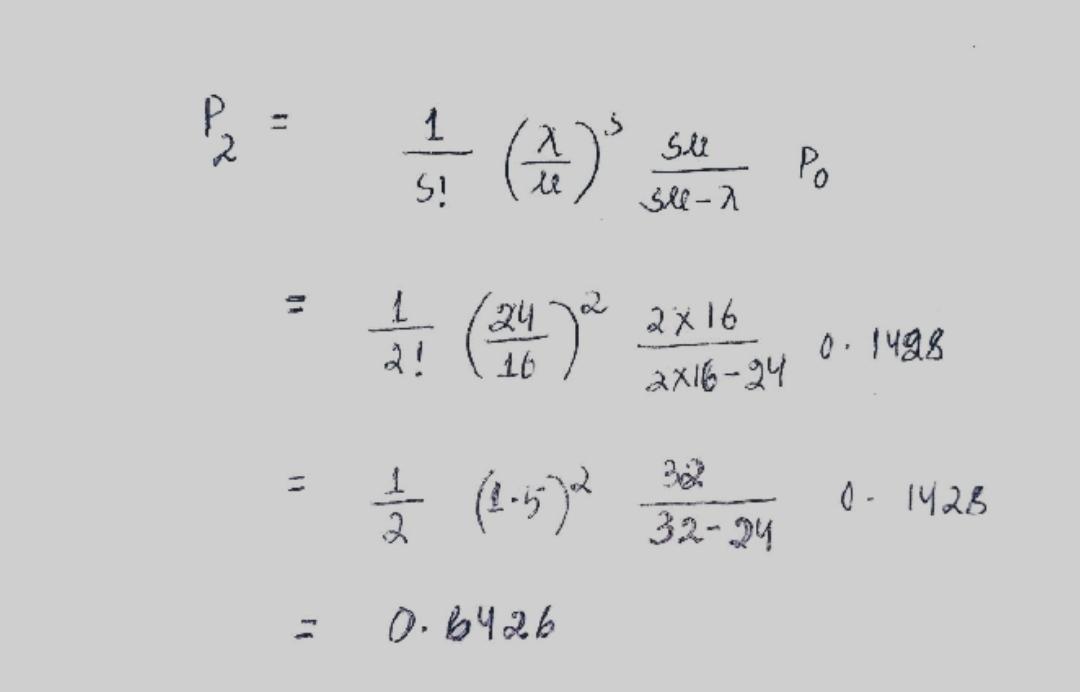 P₂ = 1/s! (λ/μ)^s sμ/(sμ-λ) P₀
= 1/2! (24/16)^2 (2×16)/(2×16-24) 0.1428
= 1/2 (1.5)^2 32/(32-24) 0.1428
= 0.6426